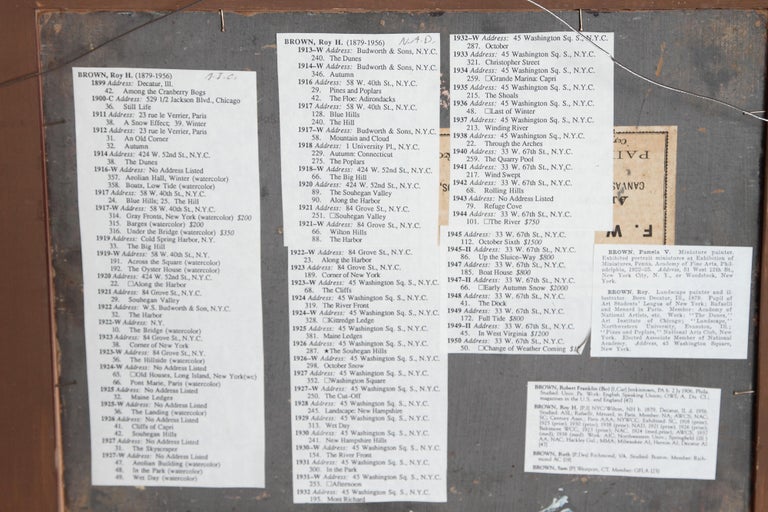 BROWN, Roy H. (1879-1956)
A.I.C.
1899 Address: Decatur, Ill.
42. Among the Cranberry Bogs
1900-C Address: 529 1/2 Jackson Blvd., Chicago
36. Still Life
1911 Address: 23 rue le Verrier, Paris
38. A Snow Effect; 39. Winter
1912 Address: 23 rue le Verrier, Paris
31. An Old Corner
32. Autumn
1914 Address: 424 W. 52nd St., N.Y.C.
38. The Dunes
1916-W Address: No Address Listed
357. Aeolian Hall, Winter (watercolor)
358. Boats, Low Tide (watercolor)
1917 Address: 58 W. 40th St., N.Y.C.
24. Blue Hills; 25. The Hill
1917-W Address: 58 W. 40th St., N.Y.C.
314. Gray Fronts, New York (watercolor) $200
315. Barges (watercolor) $200
316. Under the Bridge (watercolor) $350
1919 Address: Cold Spring Harbor, N.Y.
33. The Big Hill
1919-W Address: 58 W. 40th St., N.Y.
191. Across the Square (watercolor)
192. The Oyster House (watercolor)
1920 Address: 424 W. 52nd St., N.Y.C.
22. □Along the Harbor
1921 Address: 84 Grove St., N.Y.C.
29. Souhegan Valley
1922 Address: W.S. Budworth & Son, N.Y.C.
32. The Harbor
1922-W Address: N.Y.
10. The Bridge (watercolor)
1923 Address: 84 Grove St., N.Y.C.
38. Corner of New York
1923-W Address: 84 Grove St., N.Y.C.
56. The Hillside (watercolor)
1924-W Address: No Address Listed
65. □Old Houses, Long Island, New York(wc)
66. Pont Marie, Paris (watercolor)
1925 Address: No Address Listed
32. Maine Ledges
1925-W Address: No Address Listed
36. The Landing (watercolor)
1926 Address: No Address Listed
41. Cliffs of Capri
42. Souhegan Hills
1927 Address: No Address Listed
31. The Skyscraper
1927-W Address: No Address Listed
47. Aeolian Building (watercolor)
48. In the Park (watercolor)
49. Wet Day (watercolor)
BROWN, Roy H. (1879-1956)
N.A.D.
1913-W Address: Budworth & Sons, N.Y.C.
240. The Dunes
1914-W Address: Budworth & Sons, N.Y.C.
346. Autumn
1916 Address: 58 W. 40th St., N.Y.C.
29. Pines and Poplars
42. The Floe: Adirondacks
1917 Address: 58 W. 40th St., N.Y.C.
128. Blue Hills
240. The Hill
1917-W Address: Budworth & Sons, N.Y.C.
58. Mountain and Cloud
1918 Address: 1 University Pl., N.Y.C.
229. Autumn: Connecticut
275. The Poplars
1918-W Address: 424 W. 52nd St., N.Y.C.
66. The Big Hill
1920 Address: 424 W. 52nd St., N.Y.C.
89. The Souhegan Valley
90. Along the Harbor
1921 Address: 84 Grove St., N.Y.C.
251. □Souhegan Valley
1921-W Address: 84 Grove St., N.Y.C.
66. Wilton Hills
88. The Harbor
1922-W Address: 84 Grove St., N.Y.C.
23. Along the Harbor
1923 Address: 84 Grove St., N.Y.C.
189. Corner of New York
1923-W Address: 45 Washington Sq. S., N.Y.C.
68. The Cliffs
1924 Address: 45 Washington Sq. S., N.Y.C.
319. The River Front
1924-W Address: 45 Washington Sq. S., N.Y.C.
328. □Kittredge Ledge
1925 Address: 45 Washington Sq. S., N.Y.C.
381. Maine Ledges
1926 Address: 45 Washington Sq. S., N.Y.C.
287. ★The Souhegan Hills
1926-W Address: 45 Washington Sq. S., N.Y.C.
298. October Snow
1927 Address: 45 Washington Sq. S., N.Y.C.
352. □Washington Square
1927-W Address: 45 Washington Sq. S., N.Y.C.
250. The Cut-Off
1928 Address: 45 Washington Sq. S., N.Y.C.
245. Landscape: New Hampshire
1929 Address: 45 Washington Sq. S., N.Y.C.
313. Wet Day
1930 Address: 45 Washington Sq. S., N.Y.C.
241. New Hampshire Hills
1930-W Address: 45 Washington Sq. S., N.Y.C.
154. The River Front
1931 Address: 45 Washington Sq. S., N.Y.C.
300. In the Park
1931-W Address: 45 Washington Sq. S., N.Y.C.
253. □Afternoon
1932 Address: 45 Washington Sq. S., N.Y.C.
195. Mont Richard
1932-W Address: 45 Washington Sq. S., N.Y.C.
287. October
1933 Address: 45 Washington Sq. S., N.Y.C.
321. Christopher Street
1934 Address: 45 Washington Sq. S., N.Y.C.
259. □Grande Marina: Capri
1935 Address: 45 Washington Sq. S., N.Y.C.
215. The Shoals
1936 Address: 45 Washington Sq. S., N.Y.C.
48. □Last of Winter
1937 Address: 45 Washington Sq. S., N.Y.C.
213. Winding River
1938 Address: 45 Washington Sq. S., N.Y.C.
22. Through the Arches
1940 Address: 33 W. 67th St., N.Y.C.
259. The Quarry Pool
1941 Address: 33 W. 67th St., N.Y.C.
217. Wind Swept
1942 Address: 33 W. 67th St., N.Y.C.
68. Rolling Hills
1943 Address: No Address Listed
79. Refuge Cove
1944 Address: 33 W. 67th St., N.Y.C.
101. □The River $750
1945 Address: 33 W. 67th St., N.Y.C.
112. October Sixth $1500
1945-II Address: 33 W. 67th St., N.Y.C.
86. Up the Sluice-Way $800
1947 Address: 33 W. 67th St., N.Y.C.
185. Boat House $800
1947-II Address: 33 W. 67th St., N.Y.C.
66. □Early Autumn Snow $2000
1948 Address: 33 W. 67th St., N.Y.C.
41. The Dock
1949 Address: 33 W. 67th St., N.Y.C.
172. Full Tide $800
1949-II Address: 33 W. 67th St., N.Y.C.
45. In West Virginia $1200
1950 Address: 33 W. 67th St., N.Y.C.
50. □Change of Weather Coming
PAI
CANVAS
F. W
BROWN, Pamela V. Miniature painter.
Exhibited portrait miniatures at Exhibition of
Miniatures, Penna. Academy of Fine Arts, Phila-
delphia, 1922-25. Address, 51 West 12th St.,
New York City, N. Y., or Woodstock, New
York.
BROWN, Roy. Landscape painter and il-
lustrator. Born Decatur, Ill., 1879. Pupil of
Art Students' League of New York; Rafaelli
and Menard in Paris. Member: Academy of
National Artists, etc. Work: "The Dunes,"
Art Institute of Chicago; "Landscape,"
Northwestern University, Evanston, Ill.;
"Pines and Poplars," National Arts Club, New
York. Elected Associate Member of National
Academy. Address, 45 Washington Square,
New York.
BROWN, Robert Franklin
BROWN, Roy H.
BROWN, Ruth
BROWN, Sam